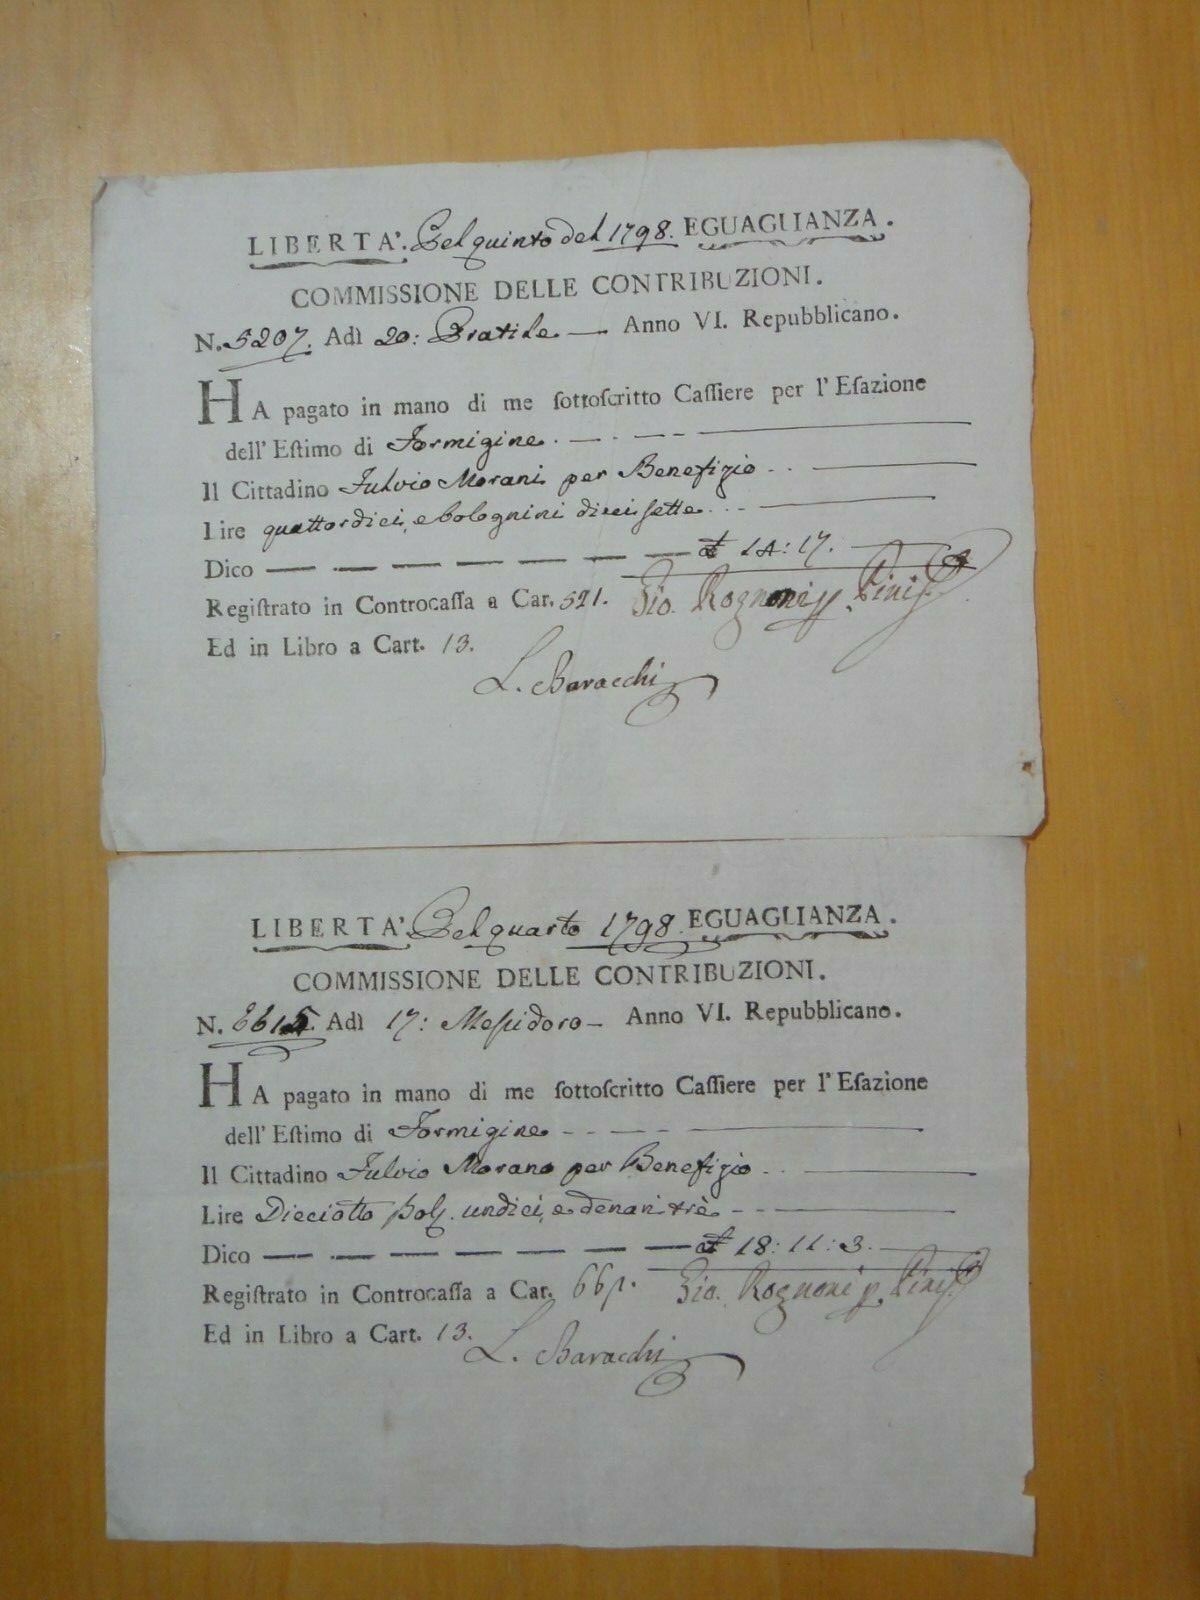 LIBERTA'. Pel quinto del 1798. EGUAGLIANZA.
COMMISSIONE DELLE CONTRIBUZIONI.
N. 5207. Adì 20: Pratile — Anno VI. Repubblicano.
HA pagato in mano di me ſottoſcritto Caſſiere per l'Eſazione
dell'Eſtimo di Formigine.
Il Cittadino Fulvio Morani per Benefizio
Lire quattordici, e bolognini dieciſette
Dico — 14: 17.
Regiſtrato in Controcaſſa a Car. 521. Gio. Rognoni p. Pini
Ed in Libro a Cart. 13.
L. Baracchi
LIBERTA' Pel quarto 1798. EGUAGLIANZA.
COMMISSIONE DELLE CONTRIBUZIONI.
N. 6615. Adì 17: Meſſidoro — Anno VI. Repubblicano.
HA pagato in mano di me ſottoſcritto Caſſiere per l'Eſazione
dell'Eſtimo di Formigine
Il Cittadino Fulvio Morano per Benefizio
Lire Dieciotto bol. undici, e denari trè
Dico — 18: 11: 3.
Regiſtrato in Controcaſſa a Car. Gio. Rognoni p. Pini
Ed in Libro a Cart. 13.
L. Baracchi